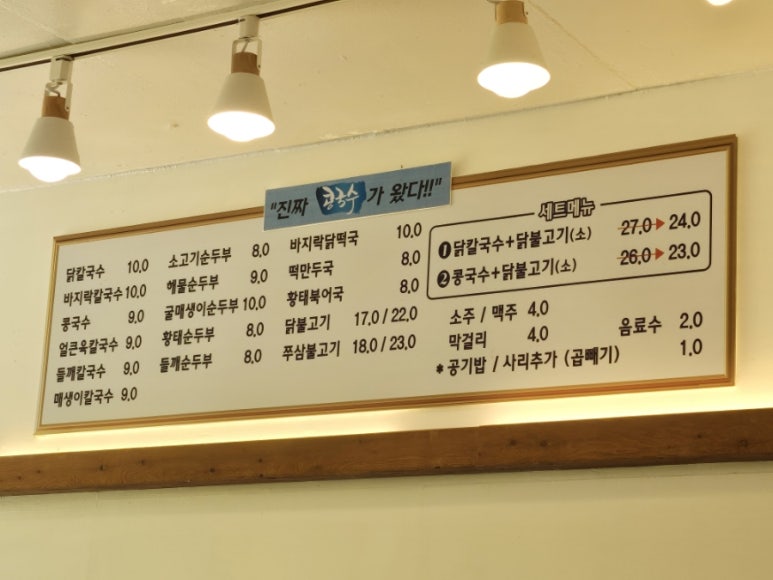 "진짜 콩국수가 왔다!!"
닭칼국수 10.0
바지락칼국수 10.0
콩국수 9.0
얼큰육칼국수 9.0
들깨칼국수 9.0
매생이칼국수 9.0
소고기순두부 8.0
해물순두부 9.0
굴매생이순두부 10.0
황태순두부 8.0
들깨순두부 8.0
바지락닭떡국 10.0
떡만두국 8.0
황태북어국 8.0
닭불고기 17.0 / 22.0
쭈삼불고기 18.0 / 23.0
세트메뉴
❶ 닭칼국수+닭불고기(소) 27.0 ▶ 24.0
❷ 콩국수+닭불고기(소) 26.0 ▶ 23.0
소주 / 맥주 4.0
막걸리 4.0
음료수 2.0
* 공기밥 / 사리추가 (곱빼기) 1.0